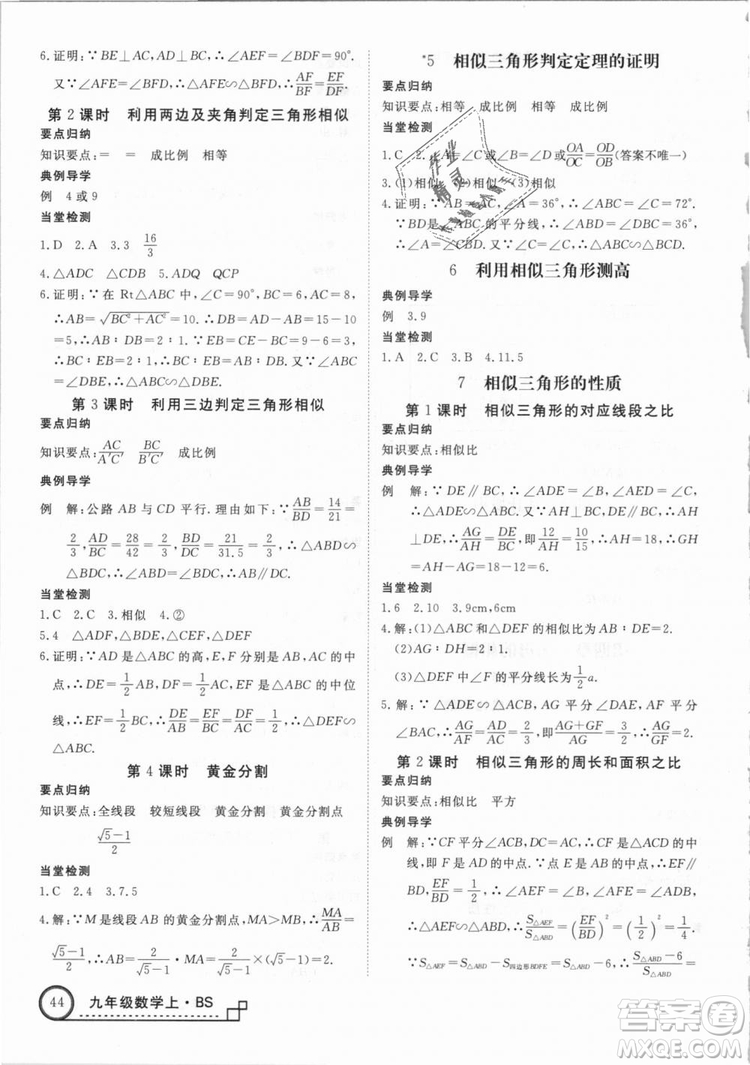 6.证明：∵BE⊥AC，AD⊥BC，∴∠AEF=∠BDF=90°.
又∵∠AFE=∠BFD，∴△AFE∽△BFD，∴AF/BF=EF/DF.
第2课时 利用两边及夹角判定三角形相似
要点归纳
知识要点：= = 成比例 相等
典例导学
例 4或9
当堂检测
1.D 2.A 3.3 16/3
4.△ABC △ADC 5.ADQ QCP
6.证明：∵在Rt△ABC中，∠C=90°，BC=6，AC=8，
∴AB=√(BC²+AC²)=10.∴DB=AD-AB=15-10
=5，∴AB∶DB=2∶1.∵EB=CE-BC=9-6=3，
∴BC∶EB=2∶1.又∵∠ABC=∠DBE，∴△ABC∽
△DBE.
第3课时 利用三边判定三角形相似
要点归纳
知识要点：AC/A'C' BC/B'C' 成比例
典例导学
例 解：公路AB与CD平行.理由如下：∵AB/BD=14/21=
2/3，AD/BC=28/42=2/3，BD/DC=21/31.5=2/3，∴△ABD∽
△BDC，∴∠ABD=∠BDC，∴AB∥DC.
当堂检测
1.C 2.C 3.相似 4.②
5.4 △ADF，△DBE，△FEC，△EFD
6.证明：∵AD是△ABC的高，E，F分别是AB，AC的中
点，∴DE=1/2AB，DF=1/2AC，EF是△ABC的中位
线，∴EF=1/2BC，∴DE/AB=DF/AC=EF/BC，∴△DEF∽
△ABC.
第4课时 黄金分割
要点归纳
知识要点：全线段 较短线段 黄金分割 黄金分割点
(√5-1)/2
当堂检测
1.C 2.4 3.7.5
4.解：∵M是线段AB的黄金分割点，MA>MB，∴MA/AB=
(√5-1)/2，∴MA=(√5-1)/2AB=(√5-1)/2×2=√5-1.
44 九年级数学上·BS
*5 相似三角形判定定理的证明
要点归纳
知识要点：相等 成比例 相等 成比例
当堂检测
1.C 2.∠A=∠D或∠B=∠C或OA/OC=OD/OB(答案不唯一)
3.(1)相似 (2)相似 (3)相似
4.证明：∵AB=AC，∠A=36°，∴∠ABC=∠C=72°.
∵BD是∠ABC的平分线，∴∠CBD=∠A=36°.又
∵∠C=∠C，∴△ABC∽△BDC.
6 利用相似三角形测高
典例导学
例 3.9
当堂检测
1.A 2.C 3.B 4.11.5
7 相似三角形的性质
第1课时 相似三角形的对应线段之比
要点归纳
知识要点：相似比
典例导学
例 解：∵DE∥BC，∴∠ADE=∠B，∠AED=∠C，
∴△ADE∽△ABC.又∵AH⊥BC，DE∥BC，∴AH
⊥DE，∴AG/AH=DE/BC，即AG/18=10/15，∴AG=12，∴GH
=AH-AG=18-12=6(cm).
当堂检测
1.6 2.10 3.9cm，6cm
4.解：(1)△ABC和△DEF的相似比为AB∶DE=2.
(2)AG∶DH=2.
(3)△DEF中∠F的平分线长为1/2a.
5.解：∵△ADE∽△ABC，AG平分∠BAC，AF平分
∠BAC，∴AG/AF=AD/AC=3/2，即(AG+GF)/AG=3/2，∴AF/GF=2.
第2课时 相似三角形的周长和面积之比
要点归纳
知识要点：相似比 平方
典例导学
例 解：∵CF平分∠ACB，DC=AC，∴CF是△ACD的中
线，即F是AD的中点.∵点E是AB的中点，∴EF∥
BD，EF/BD=1/2，∴∠B=∠AEF，∠ADB=∠AFE，
∴△AEF∽△ABD，∴S△AEF/S△ABD=(EF/BD)²=(1/2)²=1/4.
∵S△AEF=S△ABD-S四边形BDFE=S△ABD-6，∴(S△ABD-6)/S△ABD=
答案圈
MXQE.COM
作业
精灵